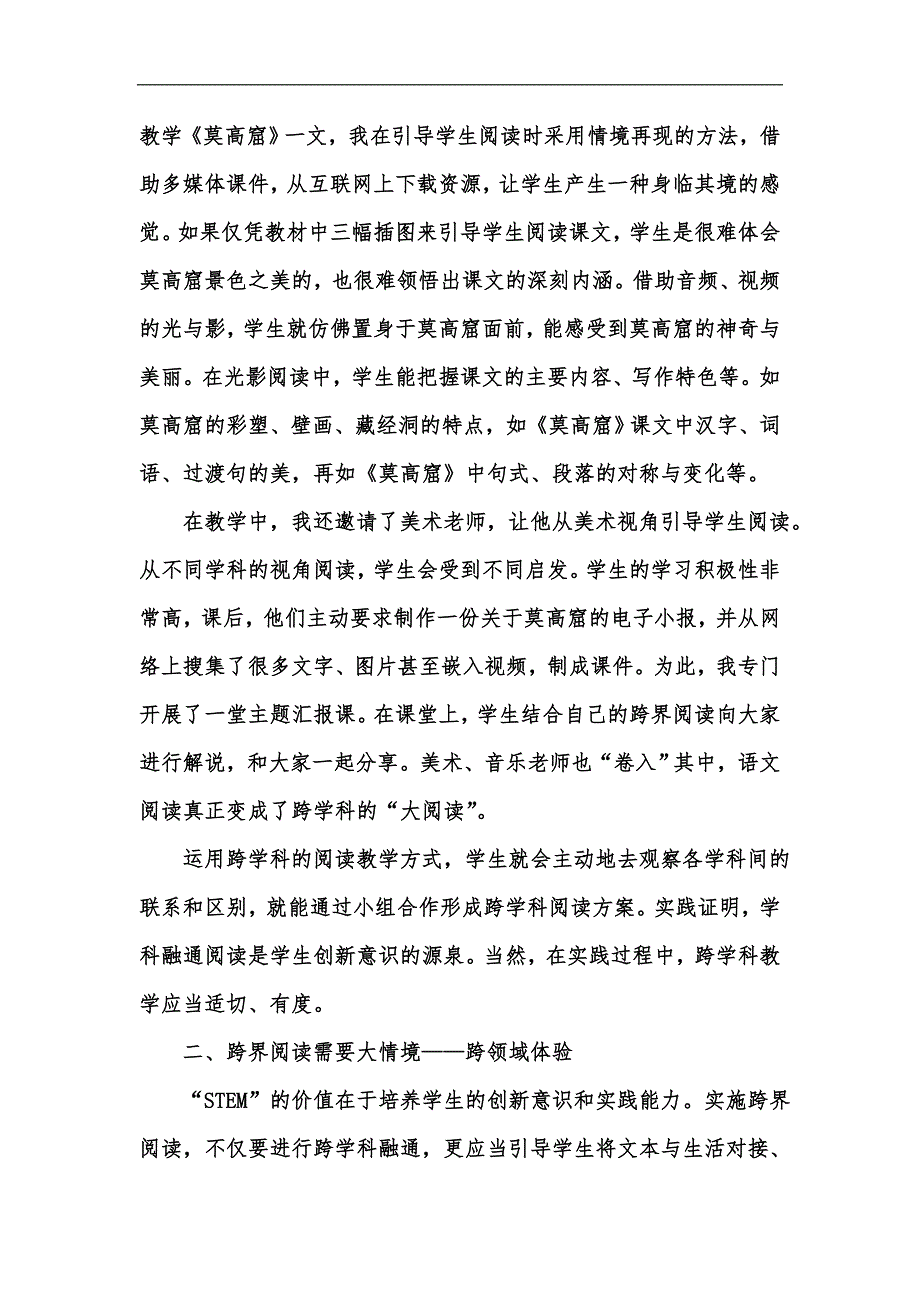 教学《莫高窟》一文，我在引导学生阅读时采用情境再现的方法，借
助多媒体课件，从互联网上下载资源，让学生产生一种身临其境的感
觉。如果仅凭教材中三幅插图来引导学生阅读课文，学生是很难体会
莫高窟景色之美的，也很难领悟出课文的深刻内涵。借助音频、视频
的光与影，学生就仿佛置身于莫高窟面前，能感受到莫高窟的神奇与
美丽。在光影阅读中，学生能把握课文的主要内容、写作特色等。如
莫高窟的彩塑、壁画、藏经洞的特点，如《莫高窟》课文中汉字、词
语、过渡句的美，再如《莫高窟》中句式、段落的对称与变化等。
在教学中，我还邀请了美术老师，让他从美术视角引导学生阅读。
从不同学科的视角阅读，学生会受到不同启发。学生的学习积极性非
常高，课后，他们主动要求制作一份关于莫高窟的电子小报，并从网
络上搜集了很多文字、图片甚至嵌入视频，制成课件。为此，我专门
开展了一堂主题汇报课。在课堂上，学生结合自己的跨界阅读向大家
进行解说，和大家一起分享。美术、音乐老师也“卷入”其中，语文
阅读真正变成了跨学科的“大阅读”。
运用跨学科的阅读教学方式，学生就会主动地去观察各学科间的
联系和区别，就能通过小组合作形成跨学科阅读方案。实践证明，学
科融通阅读是学生创新意识的源泉。当然，在实践过程中，跨学科教
学应当适切、有度。
二、跨界阅读需要大情境——跨领域体验
“STEM”的价值在于培养学生的创新意识和实践能力。实施跨界
阅读，不仅要进行跨学科融通，更应当引导学生将文本与生活对接、